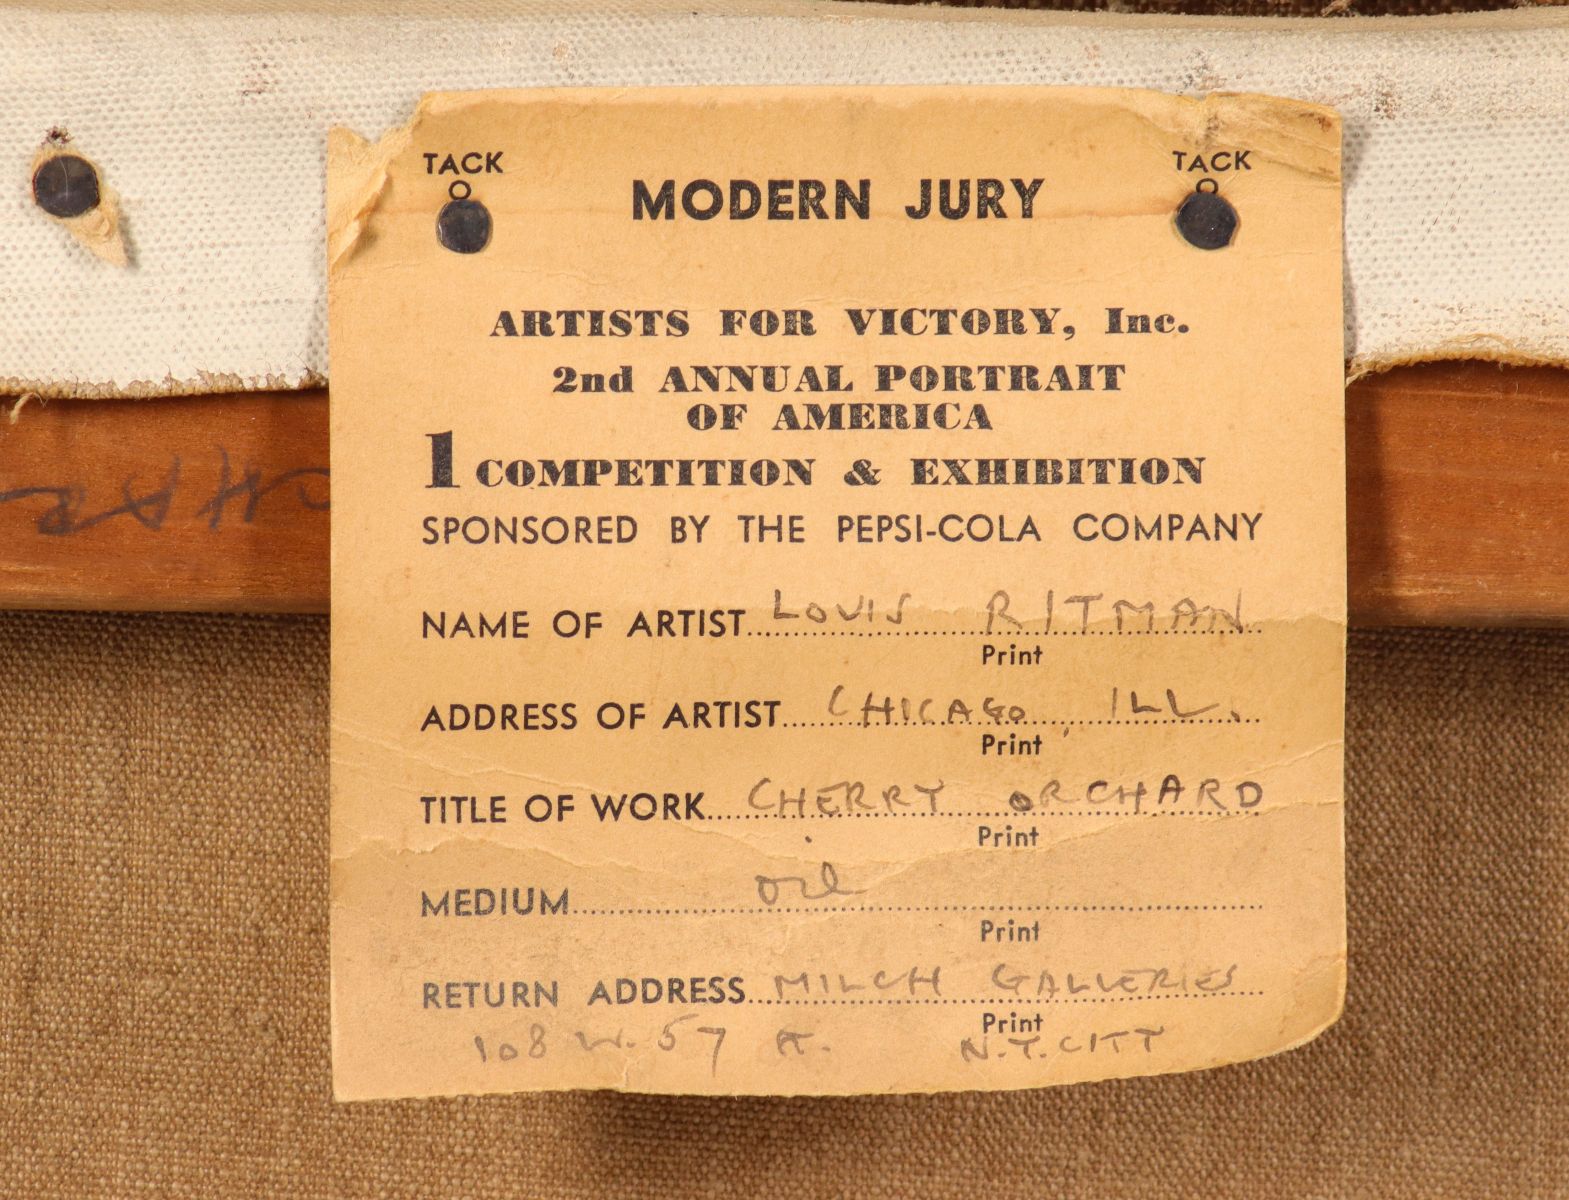 TACK TACK
MODERN JURY
ARTISTS FOR VICTORY, Inc.
2nd ANNUAL PORTRAIT
OF AMERICA
1 COMPETITION & EXHIBITION
SPONSORED BY THE PEPSI-COLA COMPANY
NAME OF ARTIST LOUIS RITMAN
Print
ADDRESS OF ARTIST CHICAGO, ILL.
Print
TITLE OF WORK CHERRY ORCHARD
Print
MEDIUM oil
Print
RETURN ADDRESS MILCH GALLERIES
Print
108 W. 57 N.Y. CITY